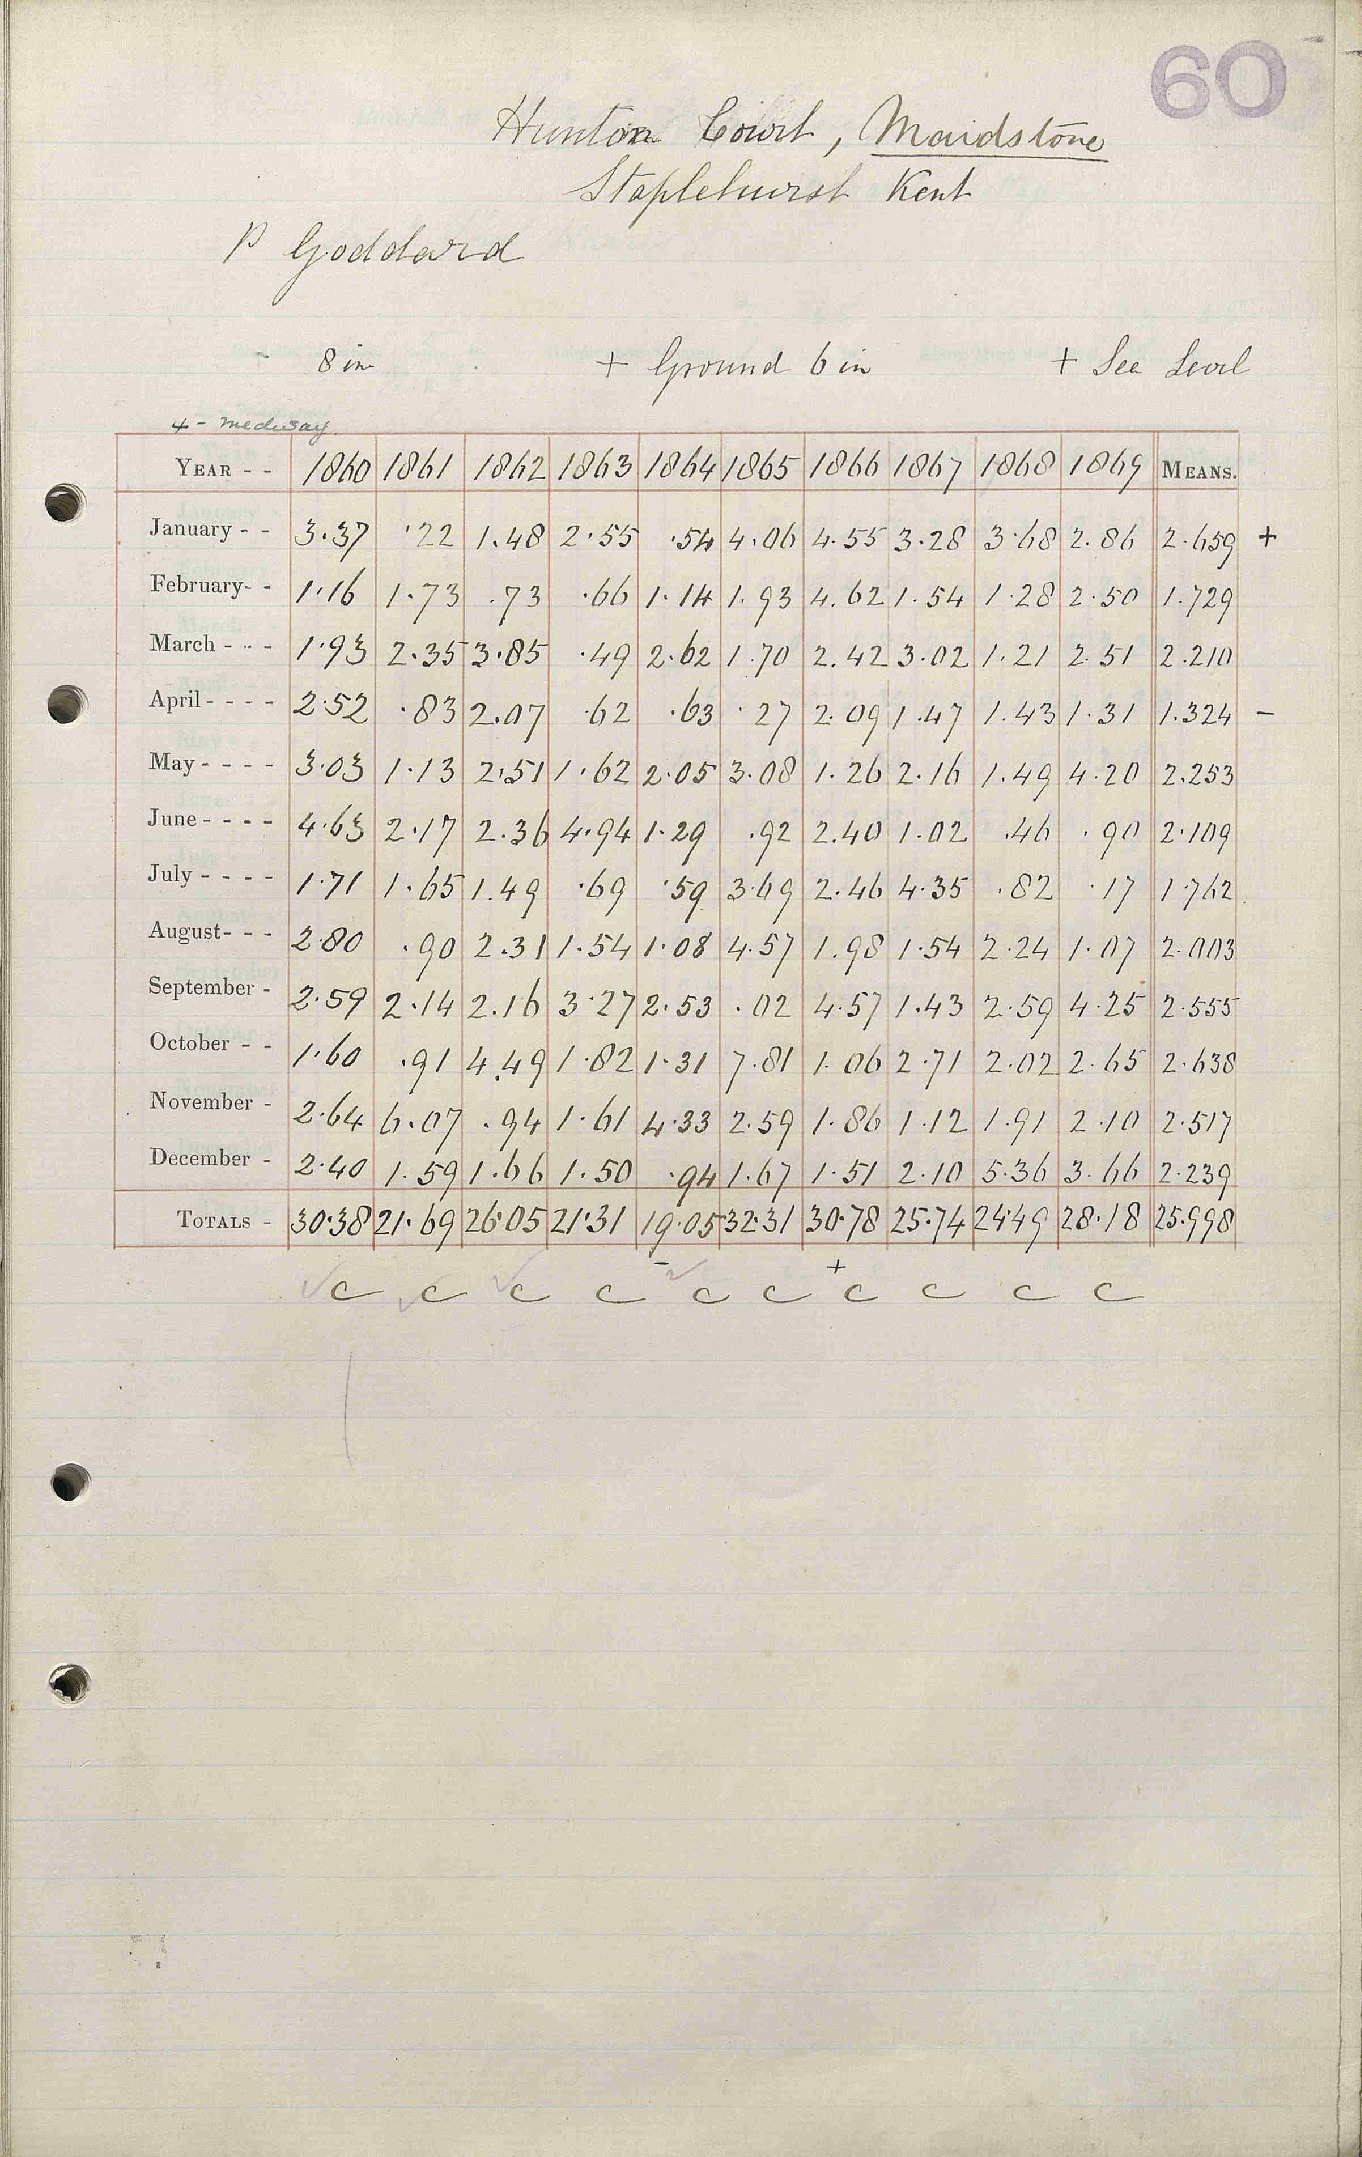 60
Hunton Court, Maidstone
Staplehurst Kent
P Goddard
8 in + Ground 6 in + Sea Level
4 - Medway
YEAR - - 1860 1861 1862 1863 1864 1865 1866 1867 1868 1869 MEANS.
January - - 3.37 .22 1.48 2.55 .54 4.06 4.55 3.28 3.68 2.86 2.659 +
February- - 1.16 1.73 .73 .66 1.14 1.93 4.62 1.54 1.28 2.50 1.729
March - - - 1.93 2.35 3.85 .49 2.62 1.70 2.42 3.02 1.21 2.51 2.210
April - - - - 2.52 .83 2.07 .62 .63 .27 2.09 1.47 1.43 1.31 1.324 -
May - - - - 3.03 1.13 2.51 1.62 2.05 3.08 1.26 2.16 1.49 4.20 2.253
June - - - - 4.63 2.17 2.36 4.94 1.29 .92 2.40 1.02 .46 .90 2.109
July - - - - 1.71 1.65 1.49 .69 .59 3.69 2.46 4.35 .82 .17 1.762
August- - - 2.80 .90 2.31 1.54 1.08 4.57 1.98 1.54 2.24 1.07 2.003
September - 2.59 2.14 2.16 3.27 2.53 .02 4.57 1.43 2.59 4.25 2.555
October - - 1.60 .91 4.49 1.82 1.31 7.81 1.06 2.71 2.02 2.65 2.638
November - 2.64 6.07 .94 1.61 4.33 2.59 1.86 1.12 1.91 2.10 2.517
December - 2.40 1.59 1.66 1.50 .94 1.67 1.51 2.10 5.36 3.66 2.239
TOTALS - 30.38 21.69 26.05 21.31 19.05 32.31 30.78 25.74 24.49 28.18 25.998
- +
c c c c c c c c c c